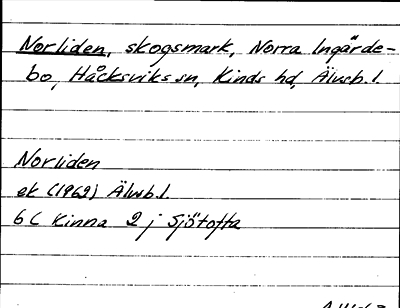 Norliden, skogsmark, Norra Ingärde-
bo, Håcksviks sn, Kinds hd, Älvsb. l.
Norliden
ek (1962) Älvsb. l.
6C Kinna 2 j Sjötofta